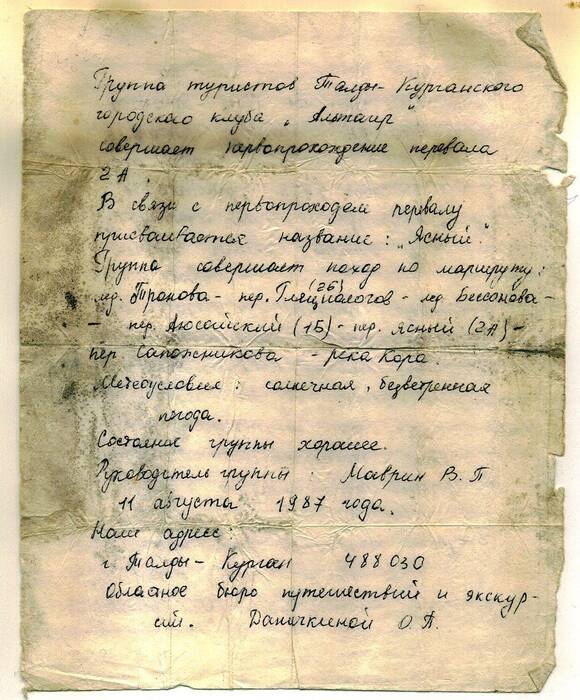 Группа туристов Талды-Курганского
городского клуба „Альтаир"
совершает первопрохождение перевала
2А.
В связи с первопроходом перевалу
присваивается название: „Ясный".
Группа совершает поход по маршруту:
лед. Тронова - пер. Гляциологов (2Б) - лед. Бессонова -
- пер. Аюсайский (1Б) - пер. Ясный (2А) -
пер. Сапожникова - река Кора.
Метеоусловия: солнечная, безветренная
погода.
Состояние группы хорошее.
Руководитель группы: Маврин В. П
11 августа 1987 года.
Наш адрес:
г. Талды-Курган 488030
Областное бюро путешествий и экскур-
сий. Даничкиной О. П.